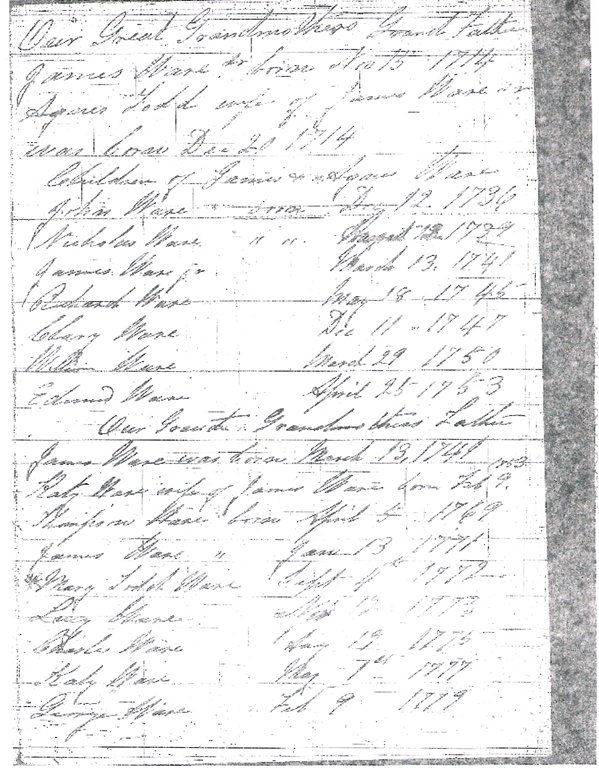 Our Great Grandmothers Grand Father
James Ware Sr born Nov 15 1714
Agnes Todd wife of James Ware Sr
was born Dec 20 1714
Children of James & Agnes Ware
John Ware " born Dec 12 1736
Nicholas Ware " " 1739
James Ware jr. March 13. 1741
Richard Ware May 18 - 1745
Clary Ware Dec 11 - 1747
William Ware March 29 1750
Edmund Ware April 25 1753
Our Great Grandmothers Father
James Ware was born March 13, 1741
Katy Ware wife of James Ware born Feb 9.
Ware born April 5 1769
James Ware " Jan 13 1771
Mary Todd Ware Sept 1772
Lucy Ware 1773
Charles Ware Aug 19 1775
Katy Ware May 7 1777
George Ware Feb 9 1779